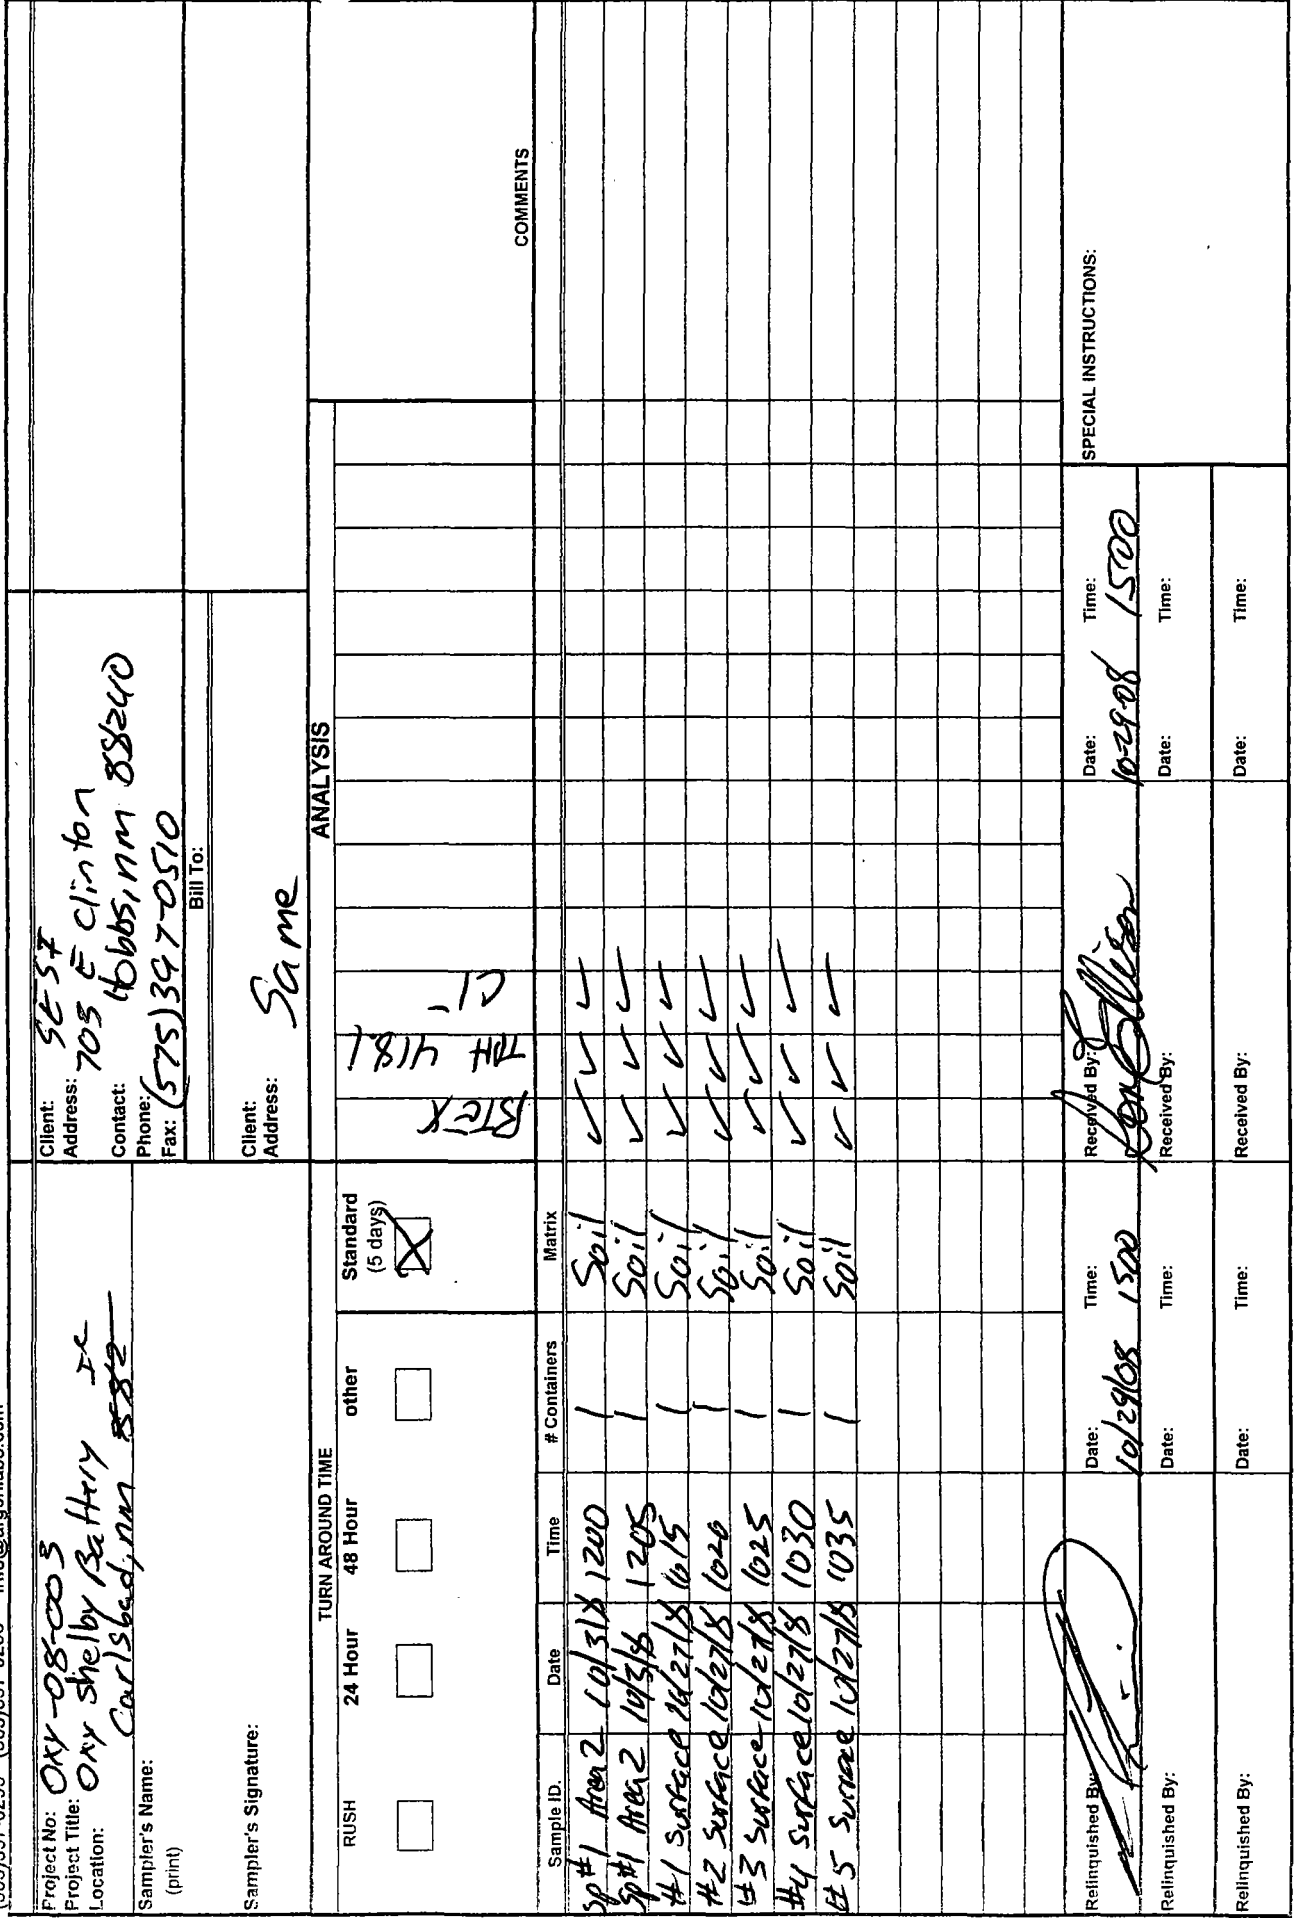 Project No: OXY-08-003
Project Title: Oxy Shelby Battery
Location: Carlsbad, nm
Sampler's Name:
(print)
Sampler's Signature:
Client: SESI
Address: 703 E Clinton
Hobbs, nm 88240
Contact:
Phone: (575) 397-0510
Fax:
Bill To:
Client:
Address:
Same
TURN AROUND TIME
RUSH 24 Hour 48 Hour other Standard
(5 days)
X
ANALYSIS
BTEX TPH 418.1 Cl-
COMMENTS
Sample ID. Date Time # Containers Matrix
Sp#1 Area 2 10/3/8 1200 1 Soil ✓ ✓ ✓
Sp#1 Area 2 10/3/8 1205 1 Soil ✓ ✓ ✓
#1 Surface 10/27/8 1015 1 Soil ✓ ✓ ✓
#2 Surface 10/27/8 1020 1 Soil ✓ ✓ ✓
#3 Surface 10/27/8 1025 1 Soil ✓ ✓ ✓
#4 Surface 10/27/8 1030 1 Soil ✓ ✓ ✓
#5 Surface 10/27/8 1035 1 Soil ✓ ✓ ✓
Relinquished By: Date: Time: Received By: Date: Time: SPECIAL INSTRUCTIONS:
10/29/08 1500 10-29-08 1500
Relinquished By: Date: Time: Received By: Date: Time:
Relinquished By: Date: Time: Received By: Date: Time: